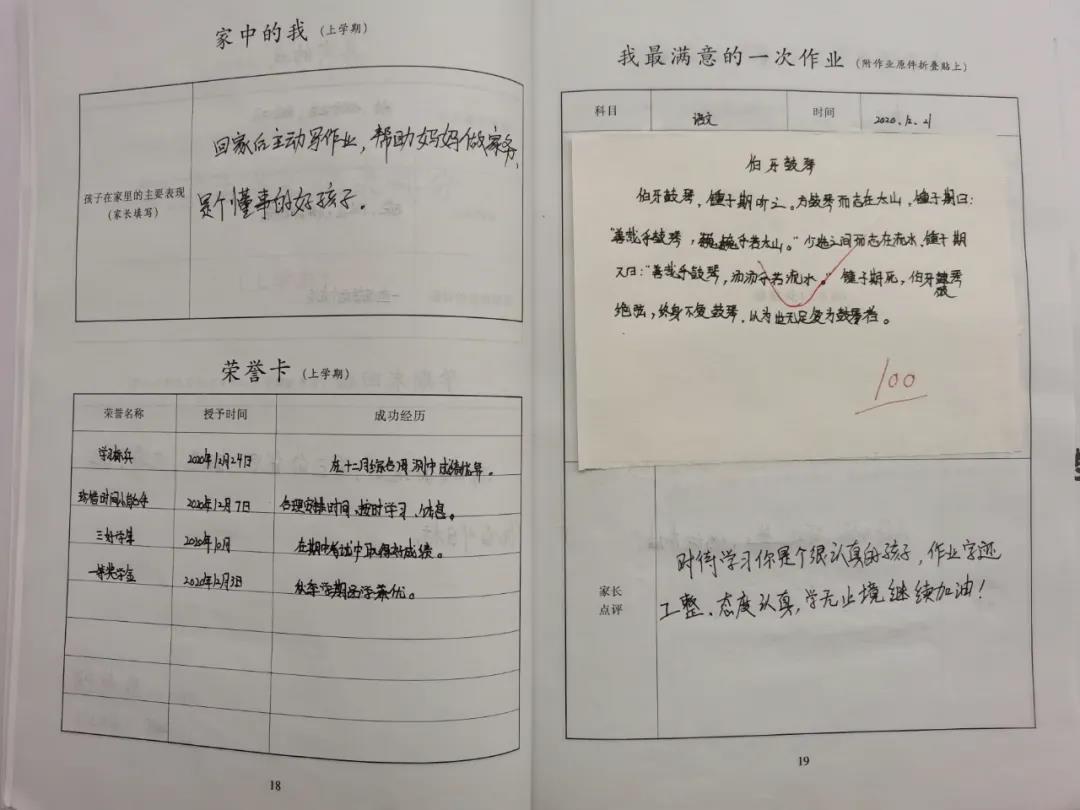 家中的我（上学期）
孩子在家里的主要表现
（家长填写）
回家后主动写作业，帮助妈妈做家务，
是个懂事的好孩子。
荣誉卡（上学期）
荣誉名称 授予时间 成功经历
学习标兵 2020年12月24日 在十二月综合调测中成绩优异。
珍惜时间小能手 2020年12月7日 合理安排时间，按时学习、休息。
三好学生 2020年10月 在期中考试中取得好成绩。
一等奖学金 2020年12月3日 秋季学期品学兼优。
18
我最满意的一次作业（附作业原件折叠贴上）
科目 语文 时间 2020.12.21
伯牙鼓琴
伯牙鼓琴，锺子期听之。方鼓琴而志在太山，锺子期曰：
“善哉乎鼓琴，巍巍乎若太山。”少选之间而志在流水，锺子期
又曰：“善哉乎鼓琴，汤汤乎若流水。”锺子期死，伯牙破琴
绝弦，终身不复鼓琴，以为世无足复为鼓琴者。
100
家长
点评
对待学习你是个很认真的孩子，作业字迹
工整、态度认真，学无止境继续加油！
19